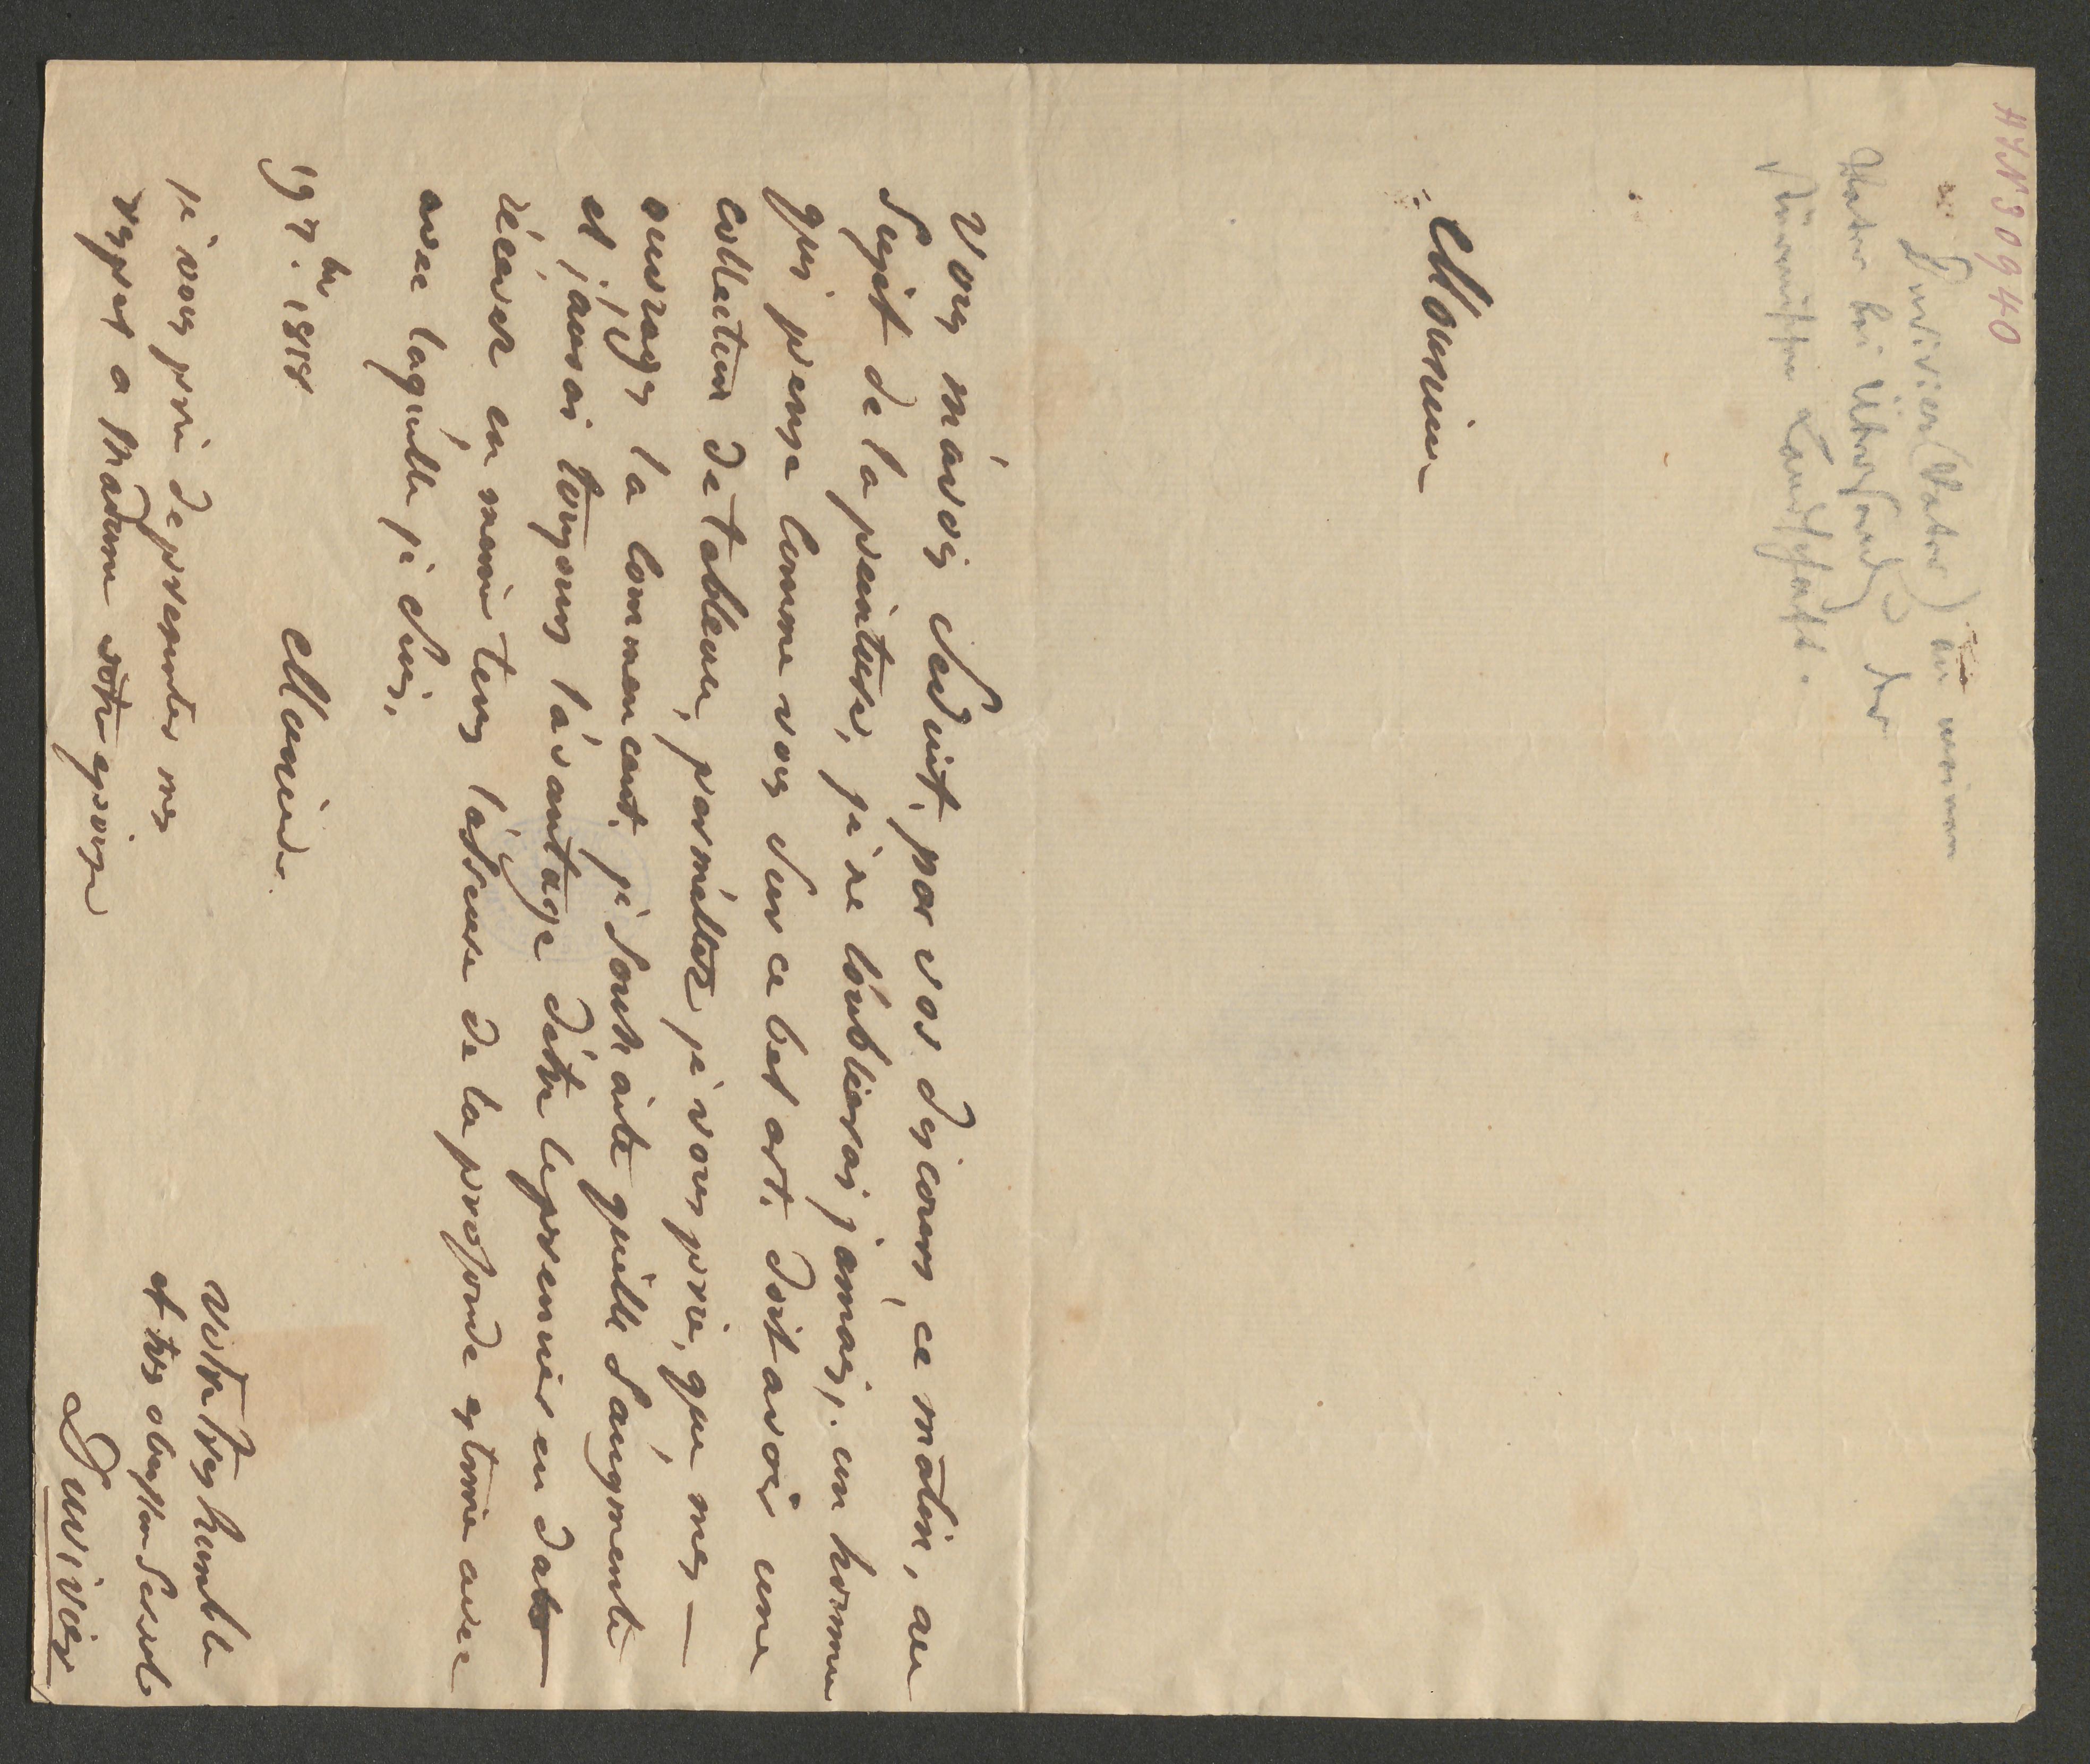 H.I.N. 30940
Duvivier (Vater) an meinen
Vater bei Übersend. der
seiner Landschaft.
Monsieur
Vous mávés Seduit, par vos discours, ce matin, au
Sujet de la peinture, je ne l'oublierai jamais, un homme
qui pense comme vous Sur ce bel art. doit avoir une
collection de tableau, permettez je vous prie, que mes
ouvrages la commencent, je Souhaite quélle Sáugmente
et j'aurai toujours lávantage dêtre le premier en date
récévez en meme tems lássurance de la profonde estime avec
avec laquélle je Suis,
Monsieur
19 7.bre 1818
votre très humble
et très obeissan Servite
Duvivier
je vous prie de presenter mes
respect a Madame votre epouse